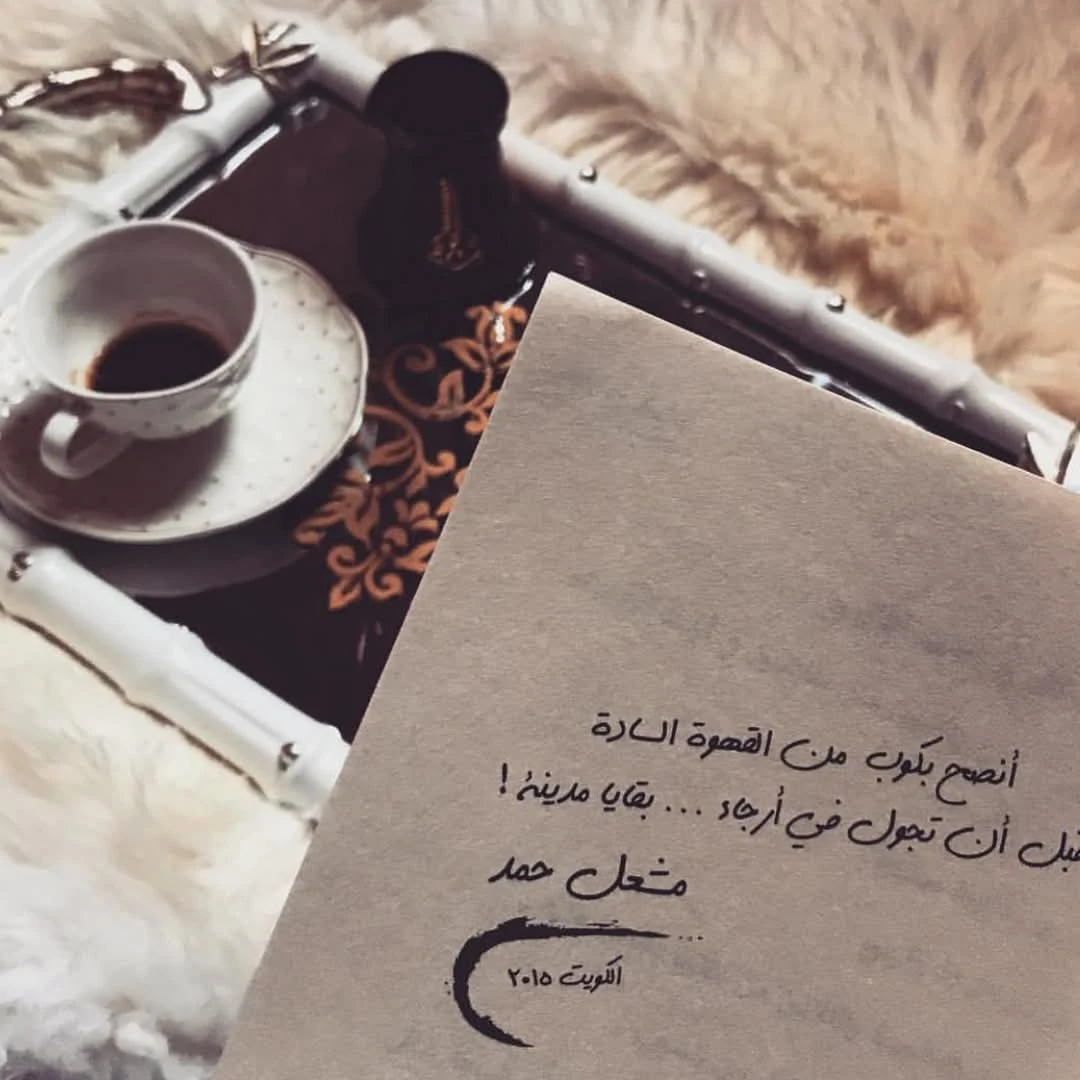 أنصح بكوب من القهوة السادة
قبل أن تجول في أرجاء ... بقايا مدينة !
مشعل حمد
الكويت ٢٠١٥